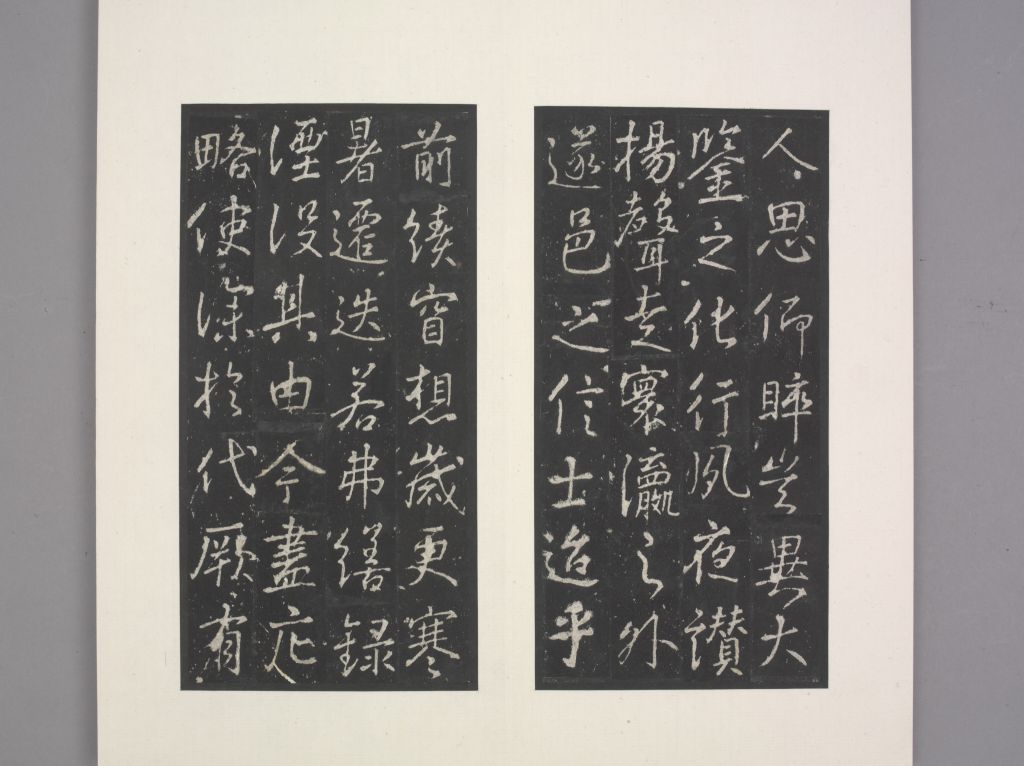 人思仰睟豈異大
鑒之化行夙夜讚
揚聲走寰瀛之外
遂邑之信士迨乎
前績窅想歲更寒
暑遷迭若弗繕錄
湮沒其由今盡
略使深於代厥有